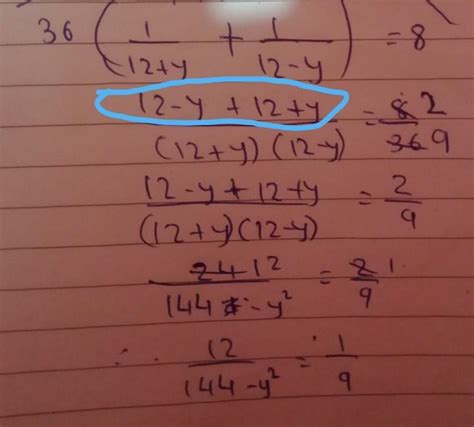 36 ( 1/12+y + 1/12-y ) = 8
12-y + 12+y / (12+y) (12-y) = 8 2 / 36 9
12-y + 12+y / (12+y)(12-y) = 2/9
24 12 / 144 - y² = 2 1 / 9
∴ 12 / 144-y² = 1/9